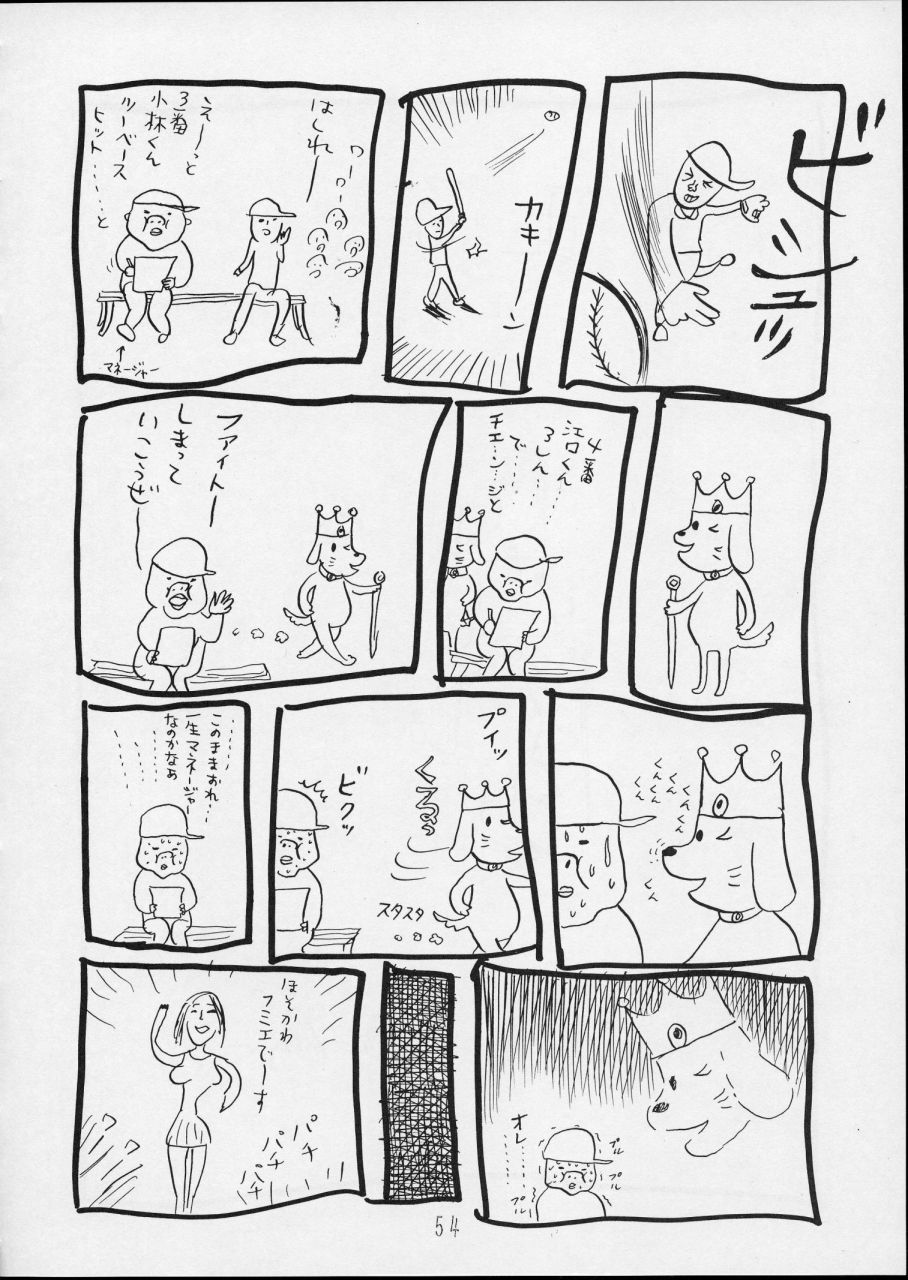 ビシュッ
カキーン
ワー
ワー
はしれー
えーっと
3番
小林くん
ツーベース
ヒット……と
マネージャー
4番
江口くん…
3しん……
で……
チェ…ン…ジと
ファイトー
しまって
いこうぜー
くんくん
くんくん
くんくん
くん
くん
プイッ
くるっ
ビクッ
スタスタ
……このままおれ…
一生マネージャー
なのかなぁ
………
オレ……
プル
プル
プル
ほそかわ
フミエでーす
パチ
パチ
パチ
54